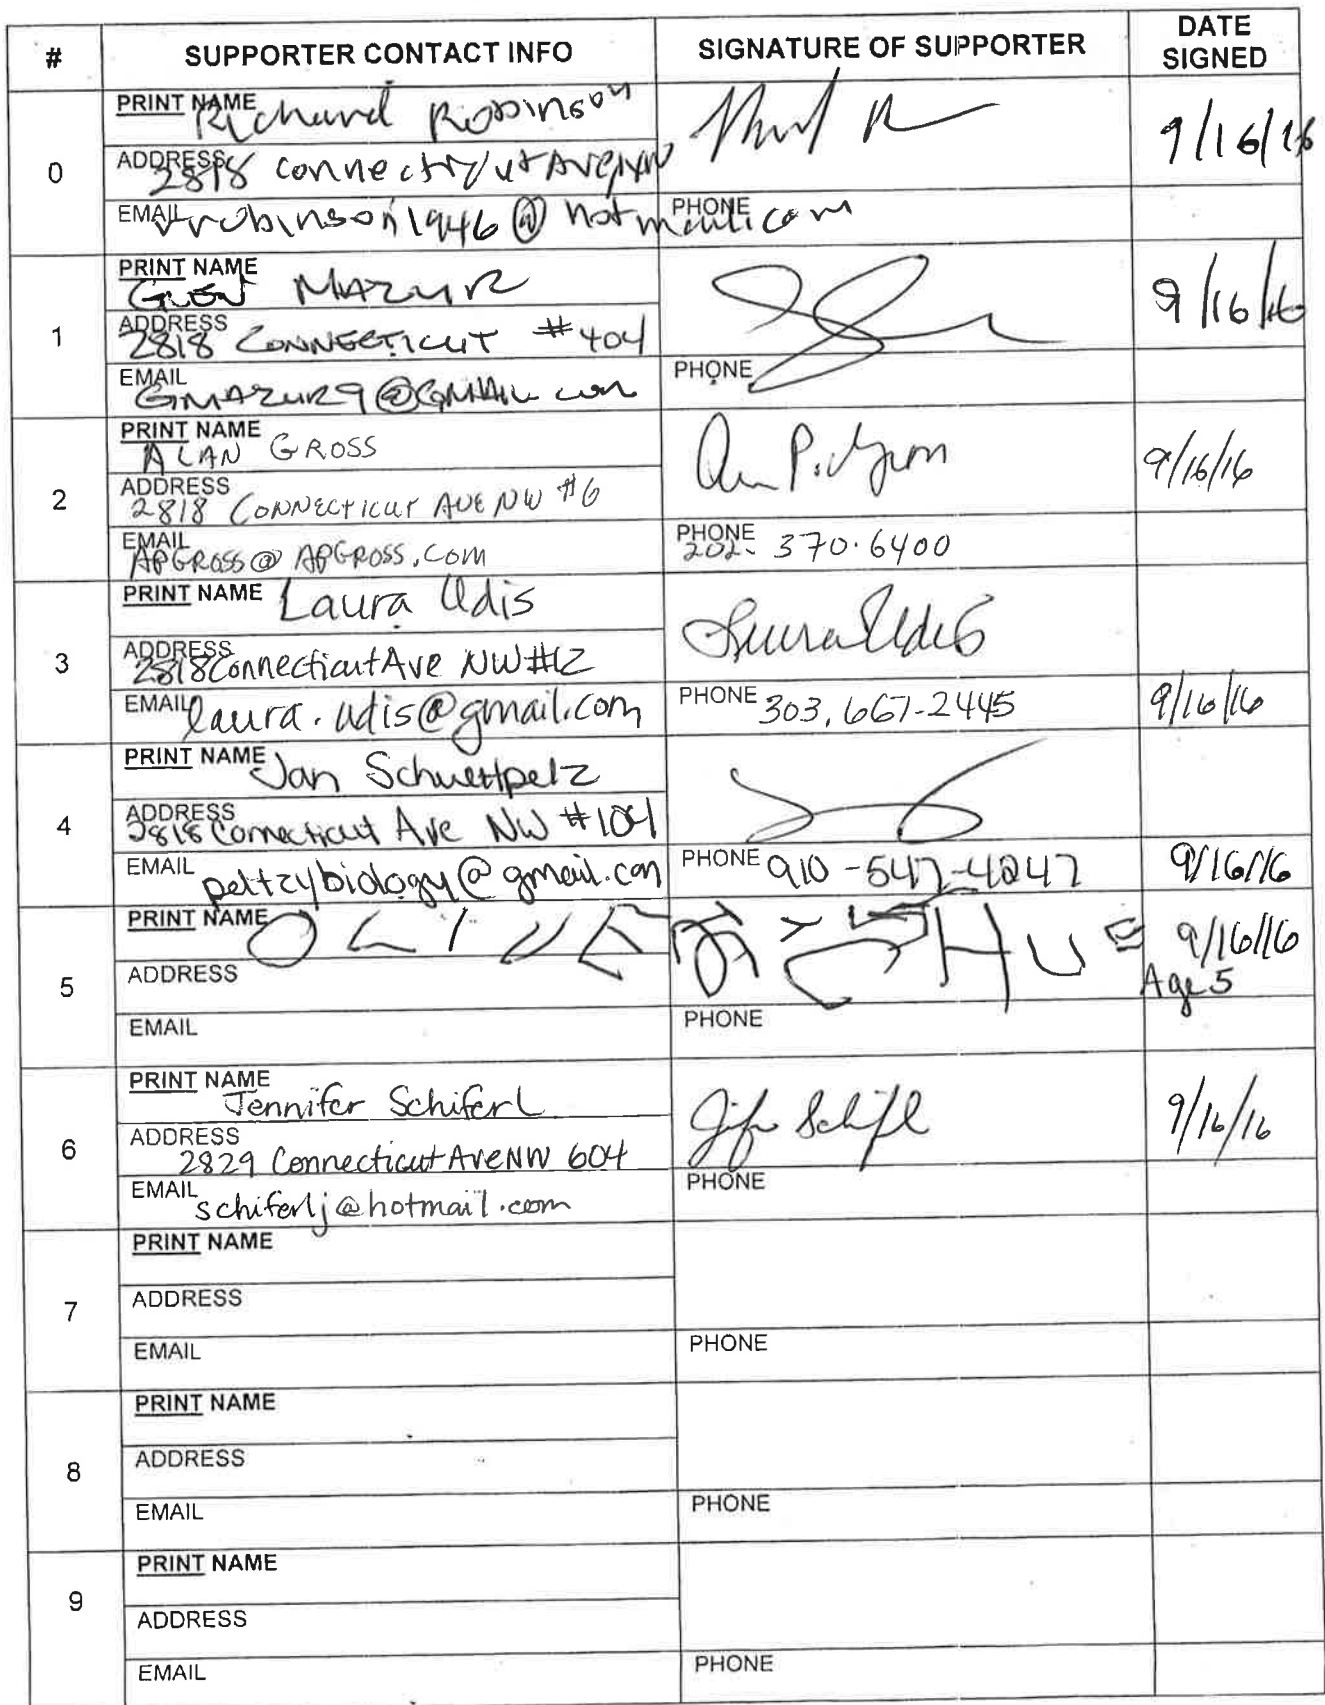 # SUPPORTER CONTACT INFO SIGNATURE OF SUPPORTER DATE SIGNED
0
PRINT NAME Richard Robinson
9/16/16
ADDRESS 2818 Connecticut Ave NW
EMAIL rrobinson1946@hotmail.com
PHONE
1
PRINT NAME GLEN MAZUR
9/16/16
ADDRESS 2818 CONNECTICUT #404
EMAIL GMAZUR9@GMAIL.com
PHONE
2
PRINT NAME ALAN GROSS
9/16/16
ADDRESS 2818 CONNECTICUT AVE NW #6
EMAIL APGROSS@APGROSS.COM
PHONE 202-370.6400
3
PRINT NAME Laura Udis
Laura Udis
ADDRESS 2818 Connecticut Ave NW #12
EMAIL laura.udis@gmail.com
PHONE 303.667-2445
9/16/16
4
PRINT NAME Jan Schuettpelz
ADDRESS 2818 Connecticut Ave NW #104
EMAIL peltzybiology@gmail.com
PHONE 910-547-4247
9/16/16
5
PRINT NAME OLIVER
9/16/16
Age 5
ADDRESS
EMAIL
PHONE
6
PRINT NAME Jennifer Schiferl
9/16/16
ADDRESS 2829 Connecticut Ave NW 604
EMAIL schiferlj@hotmail.com
PHONE
7
PRINT NAME
ADDRESS
EMAIL
PHONE
8
PRINT NAME
ADDRESS
EMAIL
PHONE
9
PRINT NAME
ADDRESS
EMAIL
PHONE